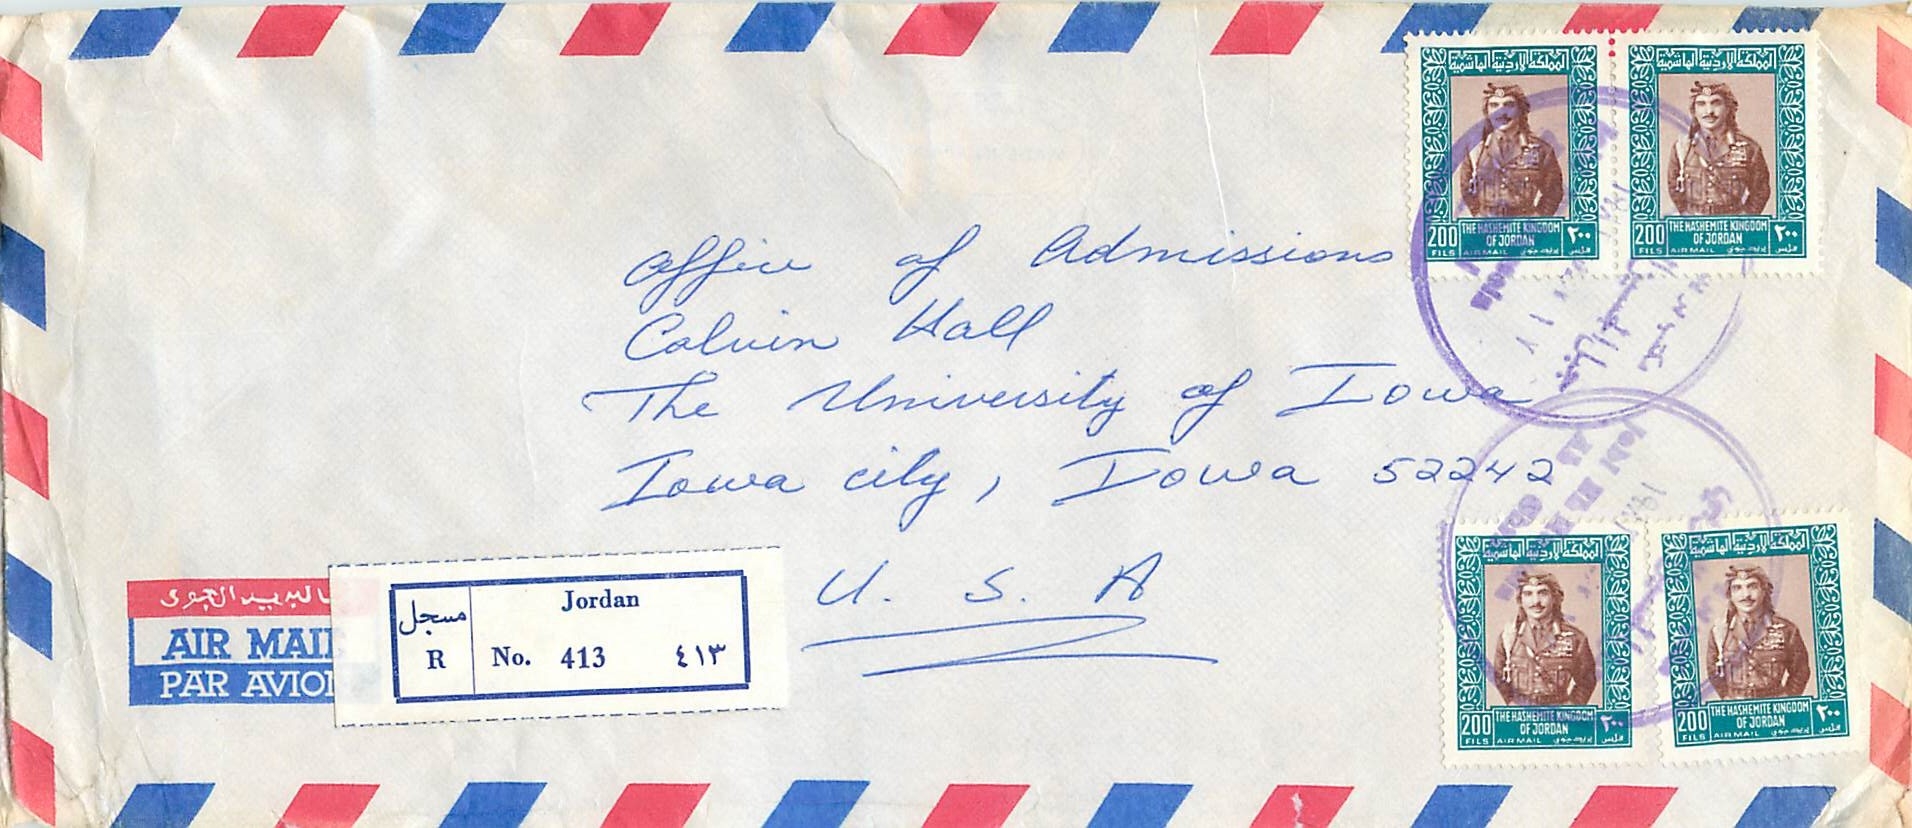 المملكة الأردنية الهاشمية
200 THE HASHEMITE KINGDOM OF JORDAN ٢٠٠
FILS AIRMAIL بريد جوي فلس
المملكة الأردنية الهاشمية
200 THE HASHEMITE KINGDOM OF JORDAN ٢٠٠
FILS AIRMAIL بريد جوي فلس
Office of Admissions
Calvin Hall
The University of Iowa
Iowa city, Iowa 52242
U. S. A
البريد الجوي
AIR MAIL
PAR AVION
مسجل
R
Jordan
No. 413 ٤١٣
المملكة الأردنية الهاشمية
200 THE HASHEMITE KINGDOM OF JORDAN ٢٠٠
FILS AIRMAIL بريد جوي فلس
المملكة الأردنية الهاشمية
200 THE HASHEMITE KINGDOM OF JORDAN ٢٠٠
FILS AIRMAIL بريد جوي فلس